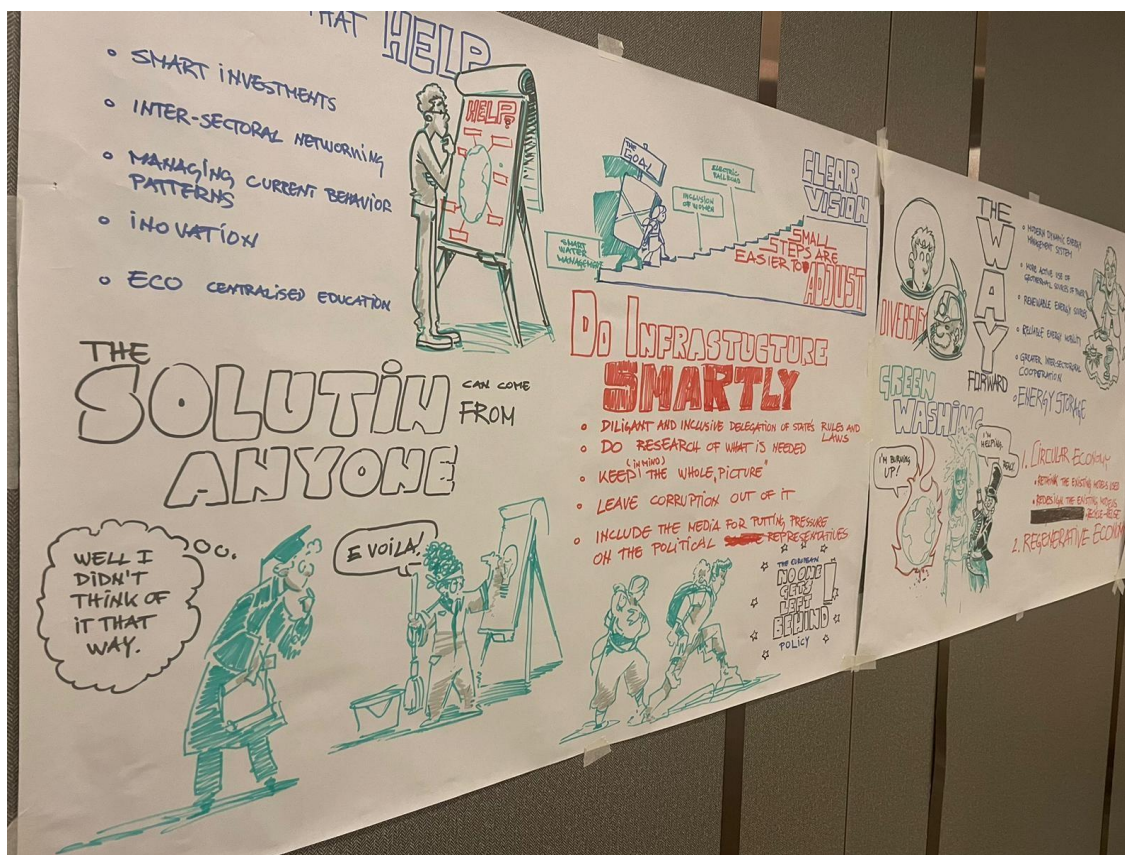 THAT HELP
• SMART INVESTMENTS
• INTER-SECTORAL NETWORNING
• MANAGING CURRENT BEHAVIOR
PATTERNS
• INOVATION
• ECO CENTRALISED EDUCATION
HELP!
THE
GOAL
SMART
WATER
MANAGEMENT
INCLUSION
OF WOMEN
ELECTRIC
RAILROAD
CLEAR
VISION
SMALL
STEPS ARE
EASIER TO ADJUST
THE
SOLUTIN
CAN COME
FROM
ANYONE
WELL I
DIDN'T
THINK OF
IT THAT
WAY.
E VOILA!
DO INFRASTUCTURE
SMARTLY
• DILIGANT AND INCLUSIVE DELEGATION OF STATE'S RULES AND
LAWS
• DO RESEARCH OF WHAT IS NEEDED
• KEEP (IN MIND) THE WHOLE "PICTURE"
• LEAVE CORRUPTION OUT OF IT
• INCLUDE THE MEDIA FOR PUTTING PRESSURE
ON THE POLITICAL REPRESENTATIVES
THE EUROPEAN
NO ONE
GETS
LEFT
BEHIND!
POLICY
DIVERSIFY
THE
WAY
FORWARD
• MODERN DYNAMIC ENERGY
MANAGEMENT SYSTEM
• MORE ACTIVE USE OF
GEOTHERMAL SOURCES OF POWER
• RENEWABLE ENERGY SOURCES
• RELIABLE ENERGY MOBILITY
• GREATER INTER-SECTORIAL
COOPERATION
• ENERGY STORAGE
GREEN
WASHING
I'M BURNING
UP!
I'M
HELPING.
1. CIRCULAR ECONOMY
• RETHINK THE EXISTING MODELS USED
• REDESIGN THE EXISTING MODELS
2. REGENERATIVE ECONOM